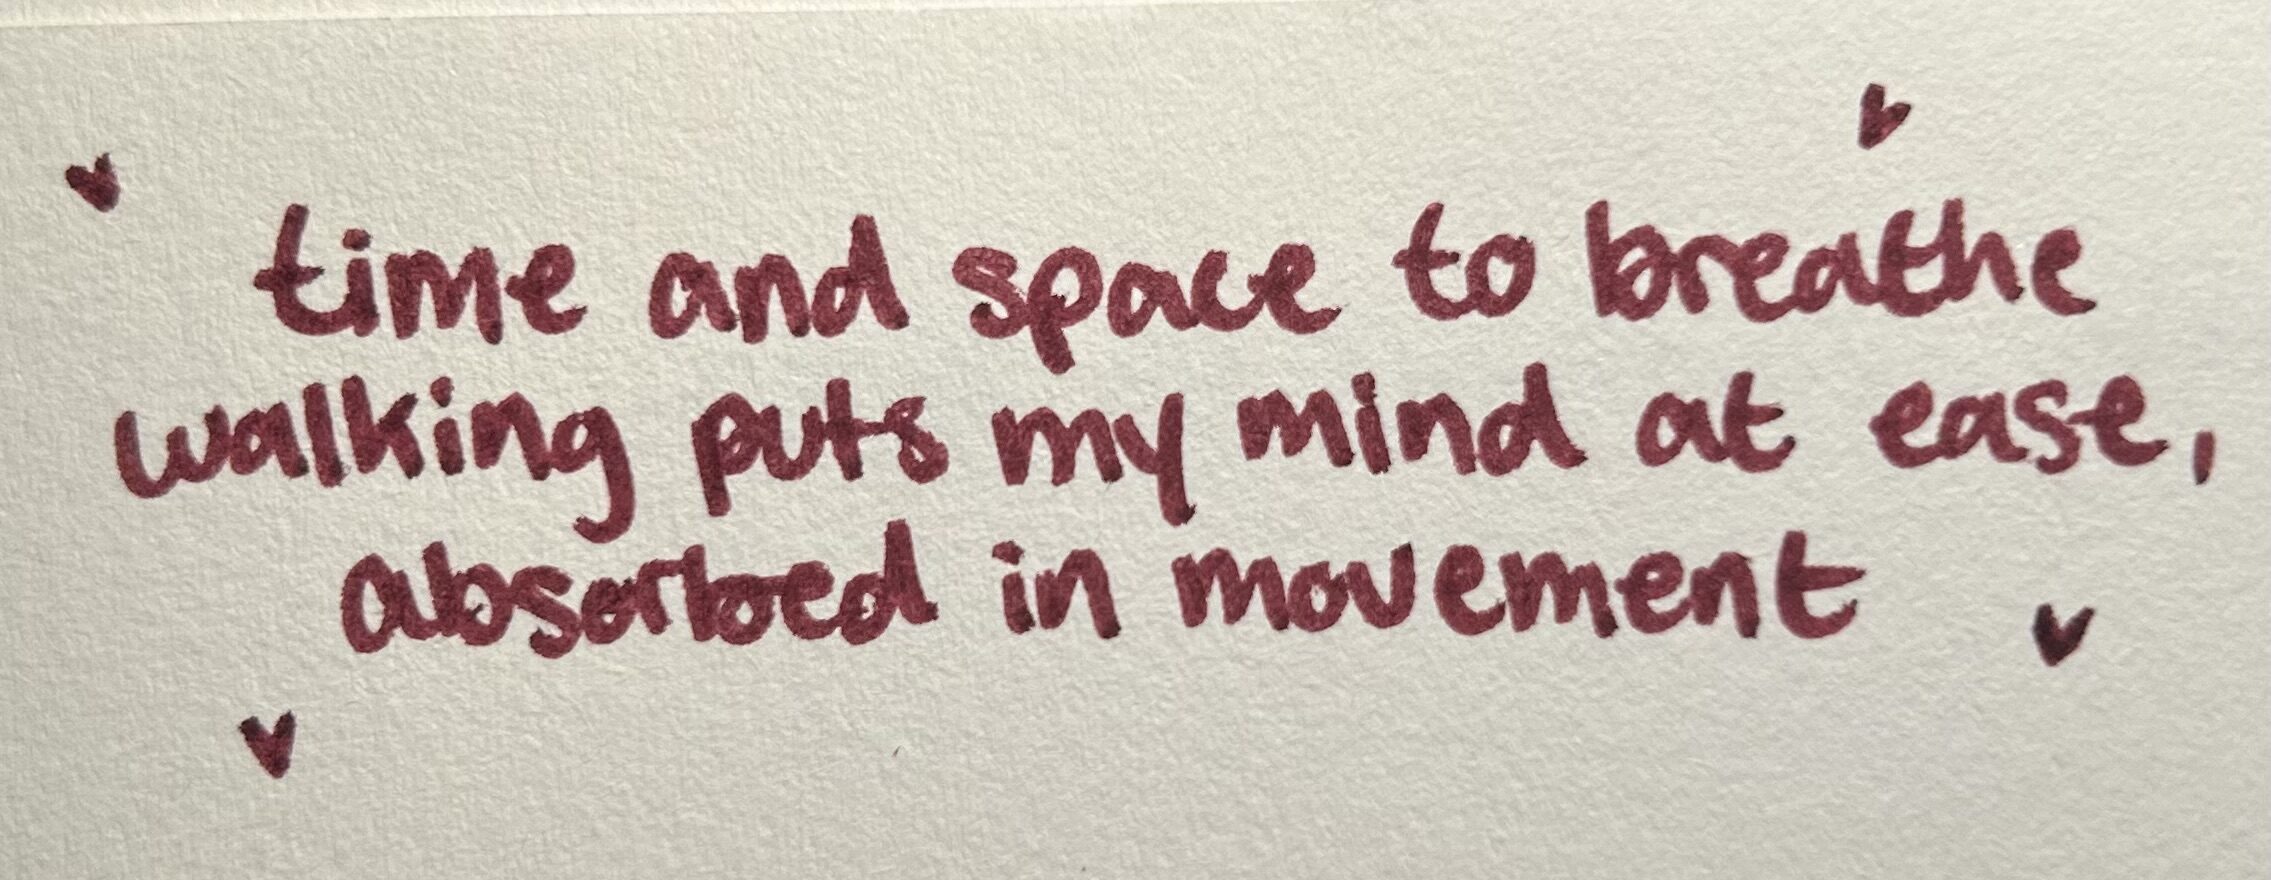 time and space to breathe
walking puts my mind at ease,
absorbed in movement